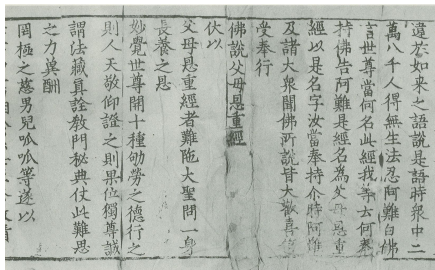 違於如來之語說是語時衆中二
萬八千人得無生法忍阿難白佛
言世尊當何名此經我等云何奉
持佛告阿難是經名為父母恩重
經以是名字汝當奉持尒時阿難
及諸大衆聞佛所說皆大歡喜信
受奉行
佛說父母恩重經
伏以
父母恩重經者難陁大聖問一身
長養之恩
妙覺世尊開十種劬勞之德行之
則人天敬仰證之則果位獨尊誠
謂法藏真詮敎門秘典仗此難思
之力冀酬
罔極之慈男兒呱呱等遂以